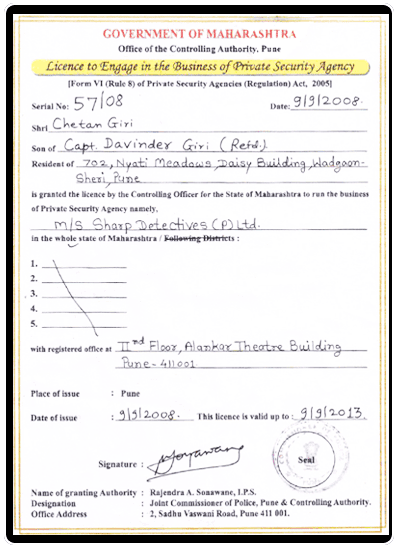 GOVERNMENT OF MAHARASHTRA
Office of the Controlling Authority, Pune
Licence to Engage in the Business of Private Security Agency
[Form VI (Rule 8) of Private Security Agencies (Regulation) Act, 2005]
Serial No: 57/08 Date: 9/9/2008.
Shri Chetan Giri
Son of Capt. Davinder Giri (Retd.).
Resident of 702, Nyati Meadows, Daisy Building, Wadgaon-
Sheri, Pune
is granted the licence by the Controlling Officer for the State of Maharashtra to run the business
of Private Security Agency namely,
M/S Sharp Detectives (P) Ltd.
in the whole state of Maharashtra / Following Districts :
1.
2.
3.
4.
5.
with registered office at IInd Floor, Alankar Theatre Building
Pune-411001
Place of issue : Pune
Date of issue : 9/9/2008. This licence is valid up to : 9/9/2013.
Signature :
Seal
Name of granting Authority : Rajendra A. Sonawane, I.P.S.
Designation : Joint Commissioner of Police, Pune & Controlling Authority.
Office Address : 2, Sadhu Vaswani Road, Pune 411 001.